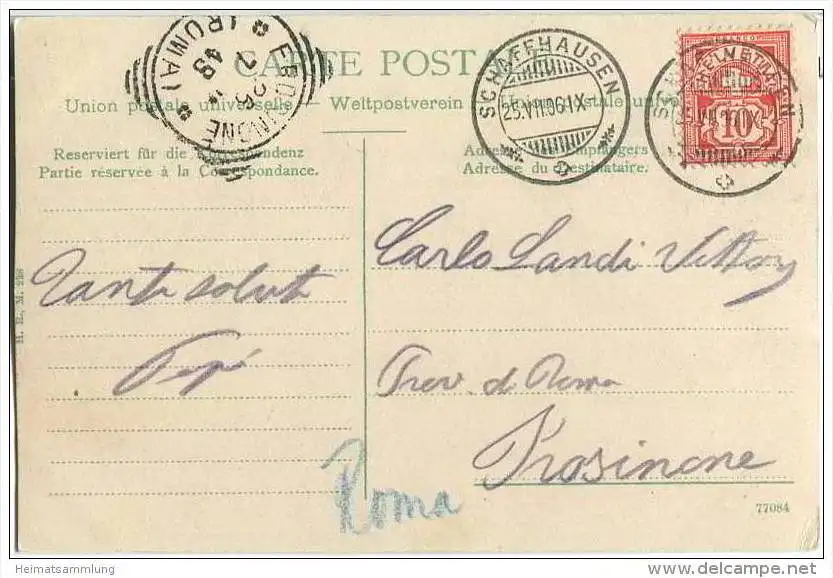 CARTE POSTA
Union postale universelle — Weltpostverein — Unione postale univer
Reserviert für die Correspondenz
Partie réservée à la Correspondance.
Adresse des Empfängers
Adresse du destinataire.
FROSINONE
(ROMA)
SCHAFFHAUSEN
25.VII.06.IX
HELVETIA
10
Tanti saluti
Pepé
Carlo Landi Vittorj
Prov. di Roma
Frosinone
Roma
77084
Heimatsammlung
www.delcampe.net